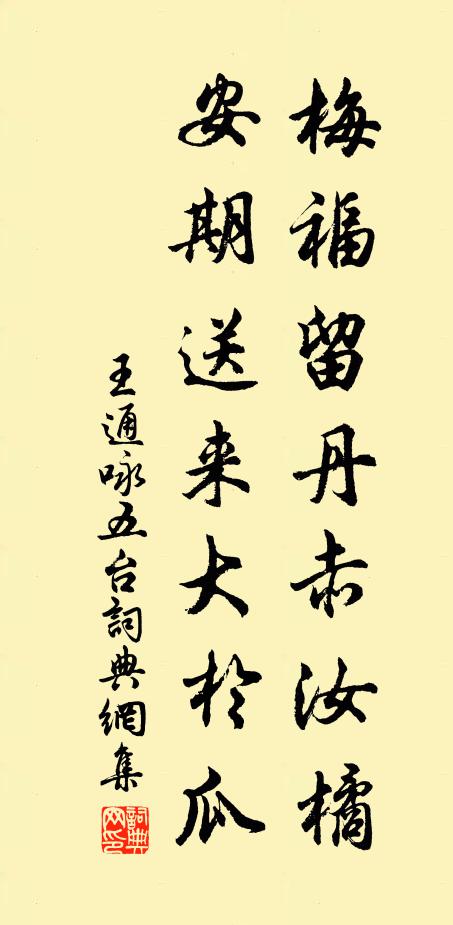 梅福留丹赤汝橘
安期送来大於瓜
王通咏五台詞典網集
詞典網印